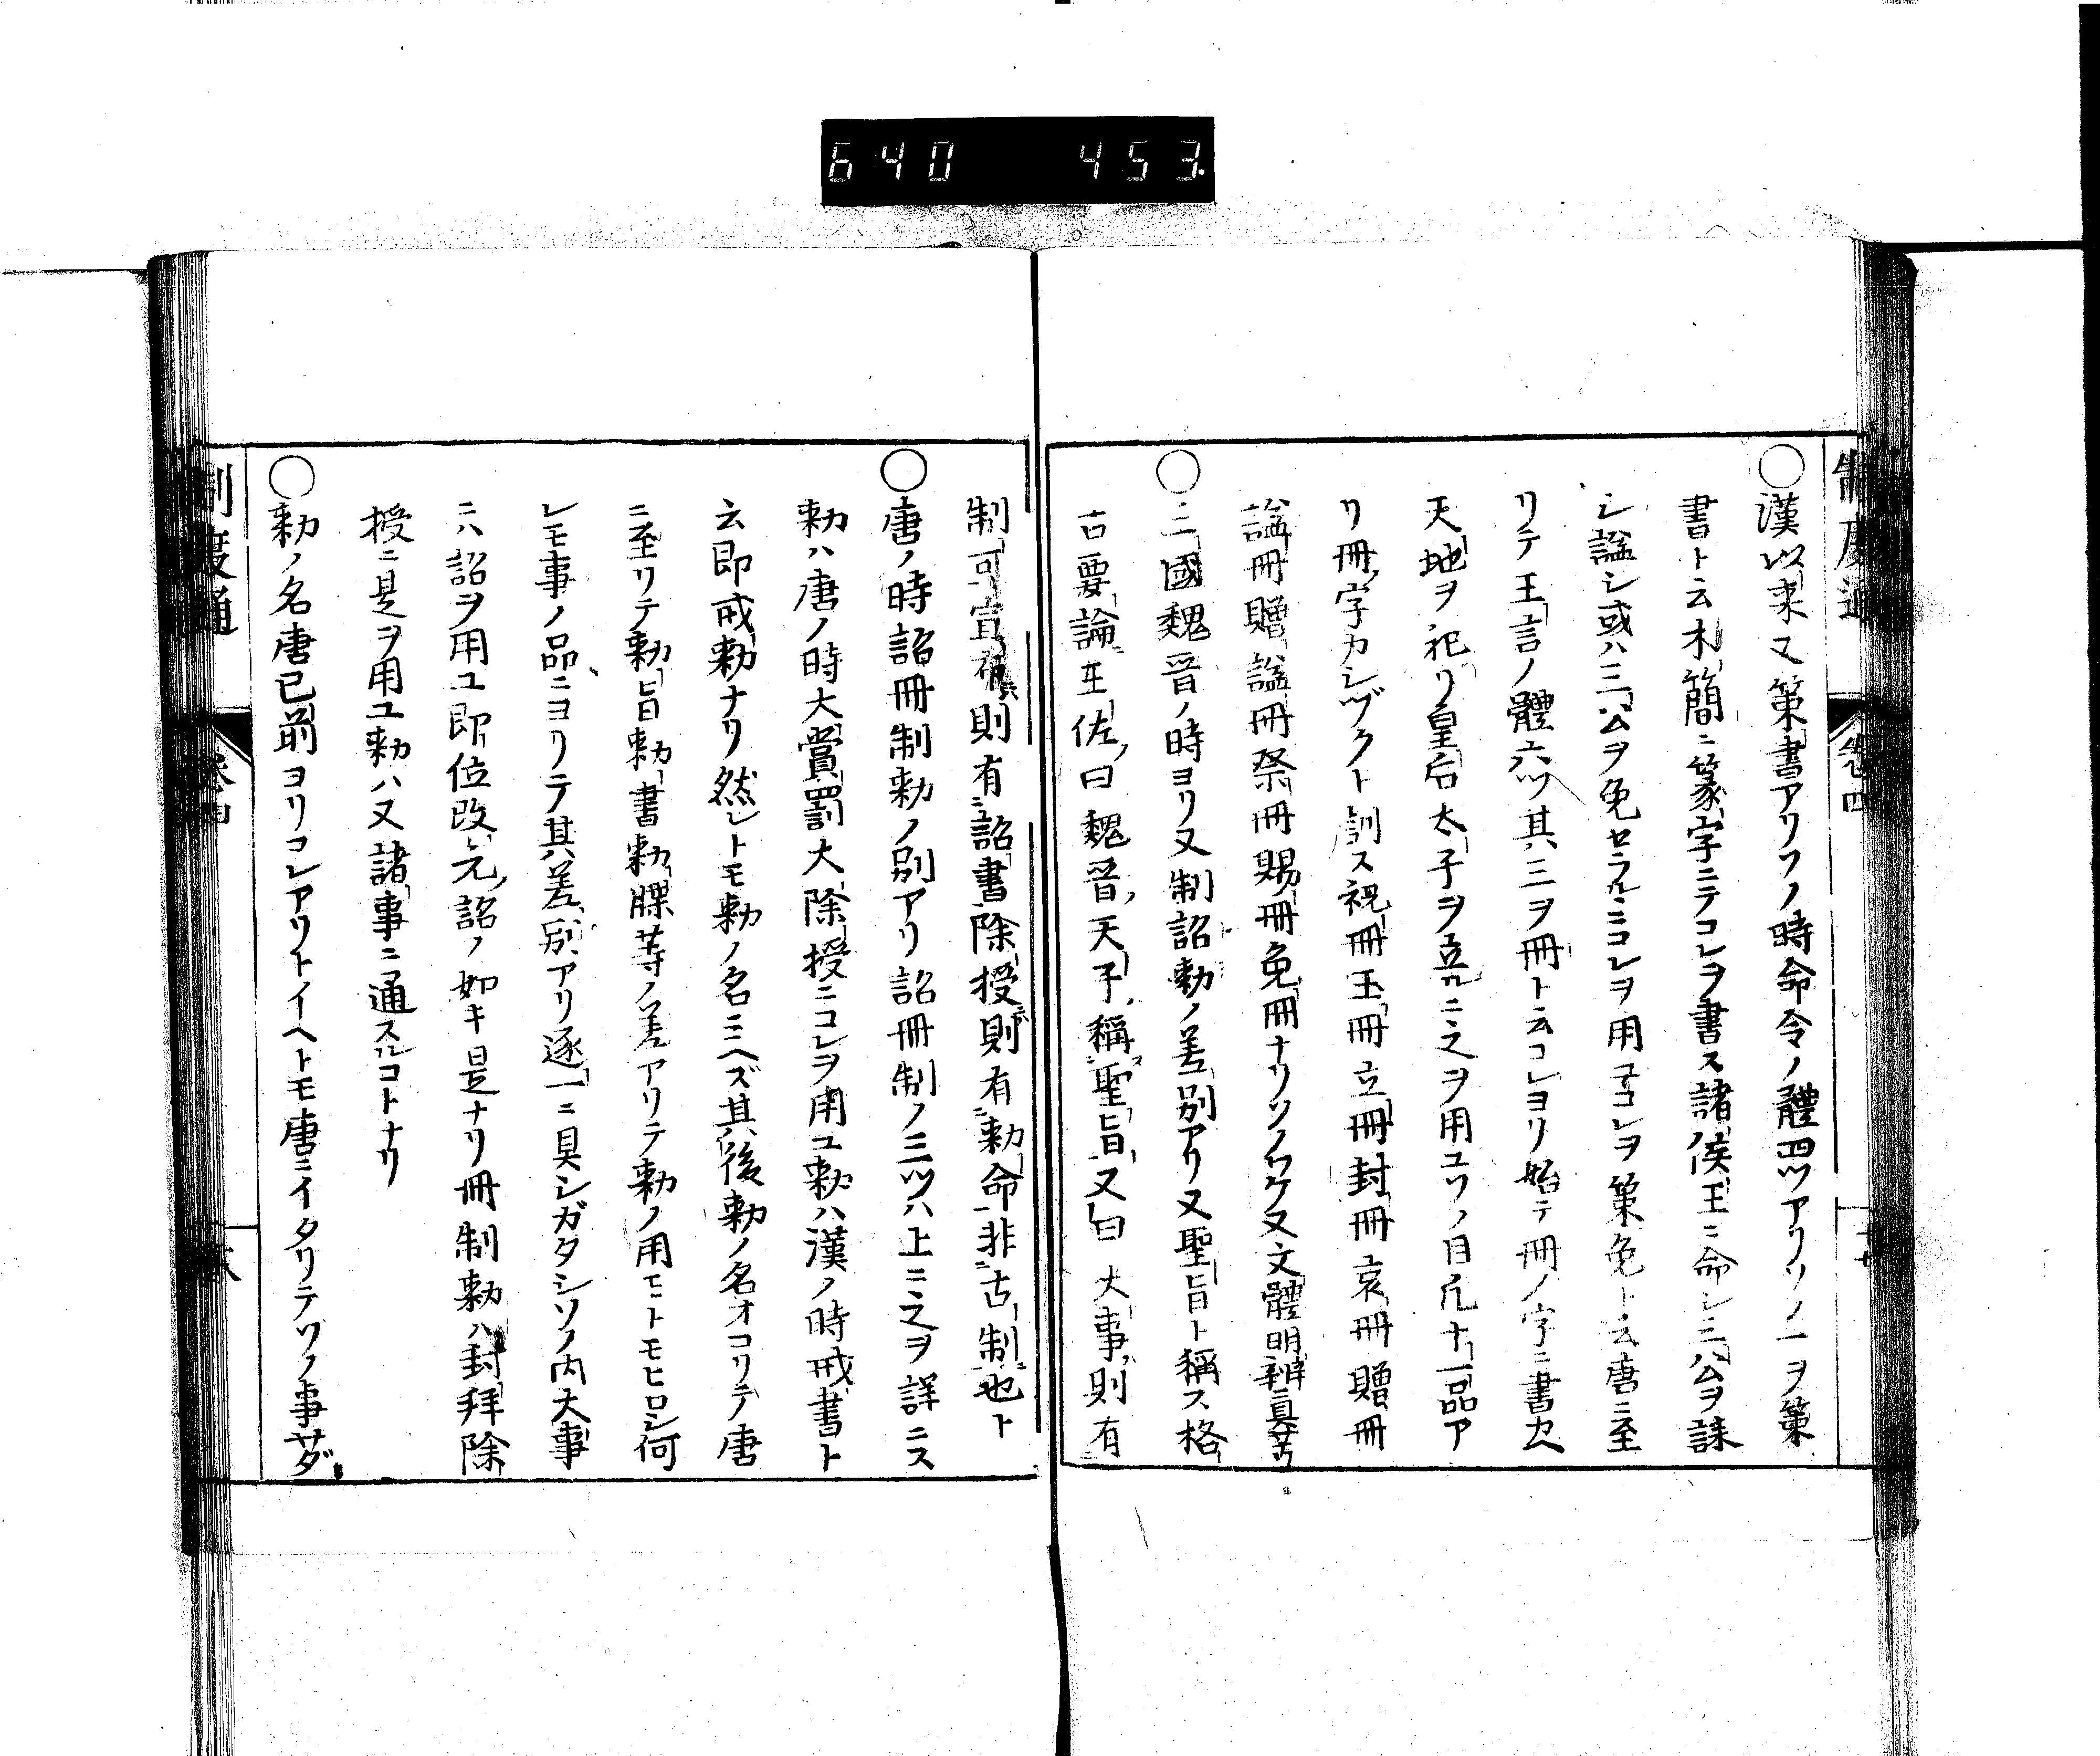 640 453
制度通
卷四
二十
○漢以來又策書アリソノ時命令ノ體四ツアリソノ一ヲ策
書ト云木簡ニ篆字ニテコレヲ書ス諸侯王ニ命シ三公ヲ誄
シ謚シ或ハ三公ヲ免セラルヽニコレヲ用ユコレヲ策免ト云唐ニ至
リテ王言ノ體六ツ其ハ三ヲ冊ト云コレヨリ始テ冊ノ字ニ書カヘ
天地ヲ祀リ皇后太子ヲ立ルニ之ヲ用ユソノ目凡十一品ア
リ冊ノ字カシヅクト訓ス祝冊玉冊立冊封冊哀冊贈冊
謚冊贈謚冊祭冊賜冊免冊ナリソノワケ又文體明辨ニ具ナリ
○三國魏晉ノ時ヨリ又制詔勅ノ差別アリ又聖旨ト稱ス格
古要論王佐曰魏晉天子稱聖旨又曰大事則有
制可宣布則有詔書除授則有勅命非古制也ト
○唐ノ時詔冊制勅ノ別アリ詔冊制ノ三ツハ上ニ之ヲ詳ニス
勅ハ唐ノ時大賞罰大除授ニコレヲ用ユ勅ハ漢ノ時戒書ト
云即戒勅ナリ然レトモ勅ノ名ミヘズ其後勅ノ名オコリテ唐
ニ至リテ勅旨勅書勅牒等ノ差アリテ勅ノ用モトモヒロシ何
レモ事ノ品ニヨリテ其差別アリ逐一ニ具シガタシソノ内大事
ニハ詔ヲ用ユ即位改元詔ノ如キ是ナリ冊制勅ハ封拜除
授ニ是ヲ用ユ勅ハ又諸事ニ通スルコトナリ
○勅ノ名唐已前ヨリコレアリトイヘトモ唐ニイタリテソノ事サダ
制度通
卷四